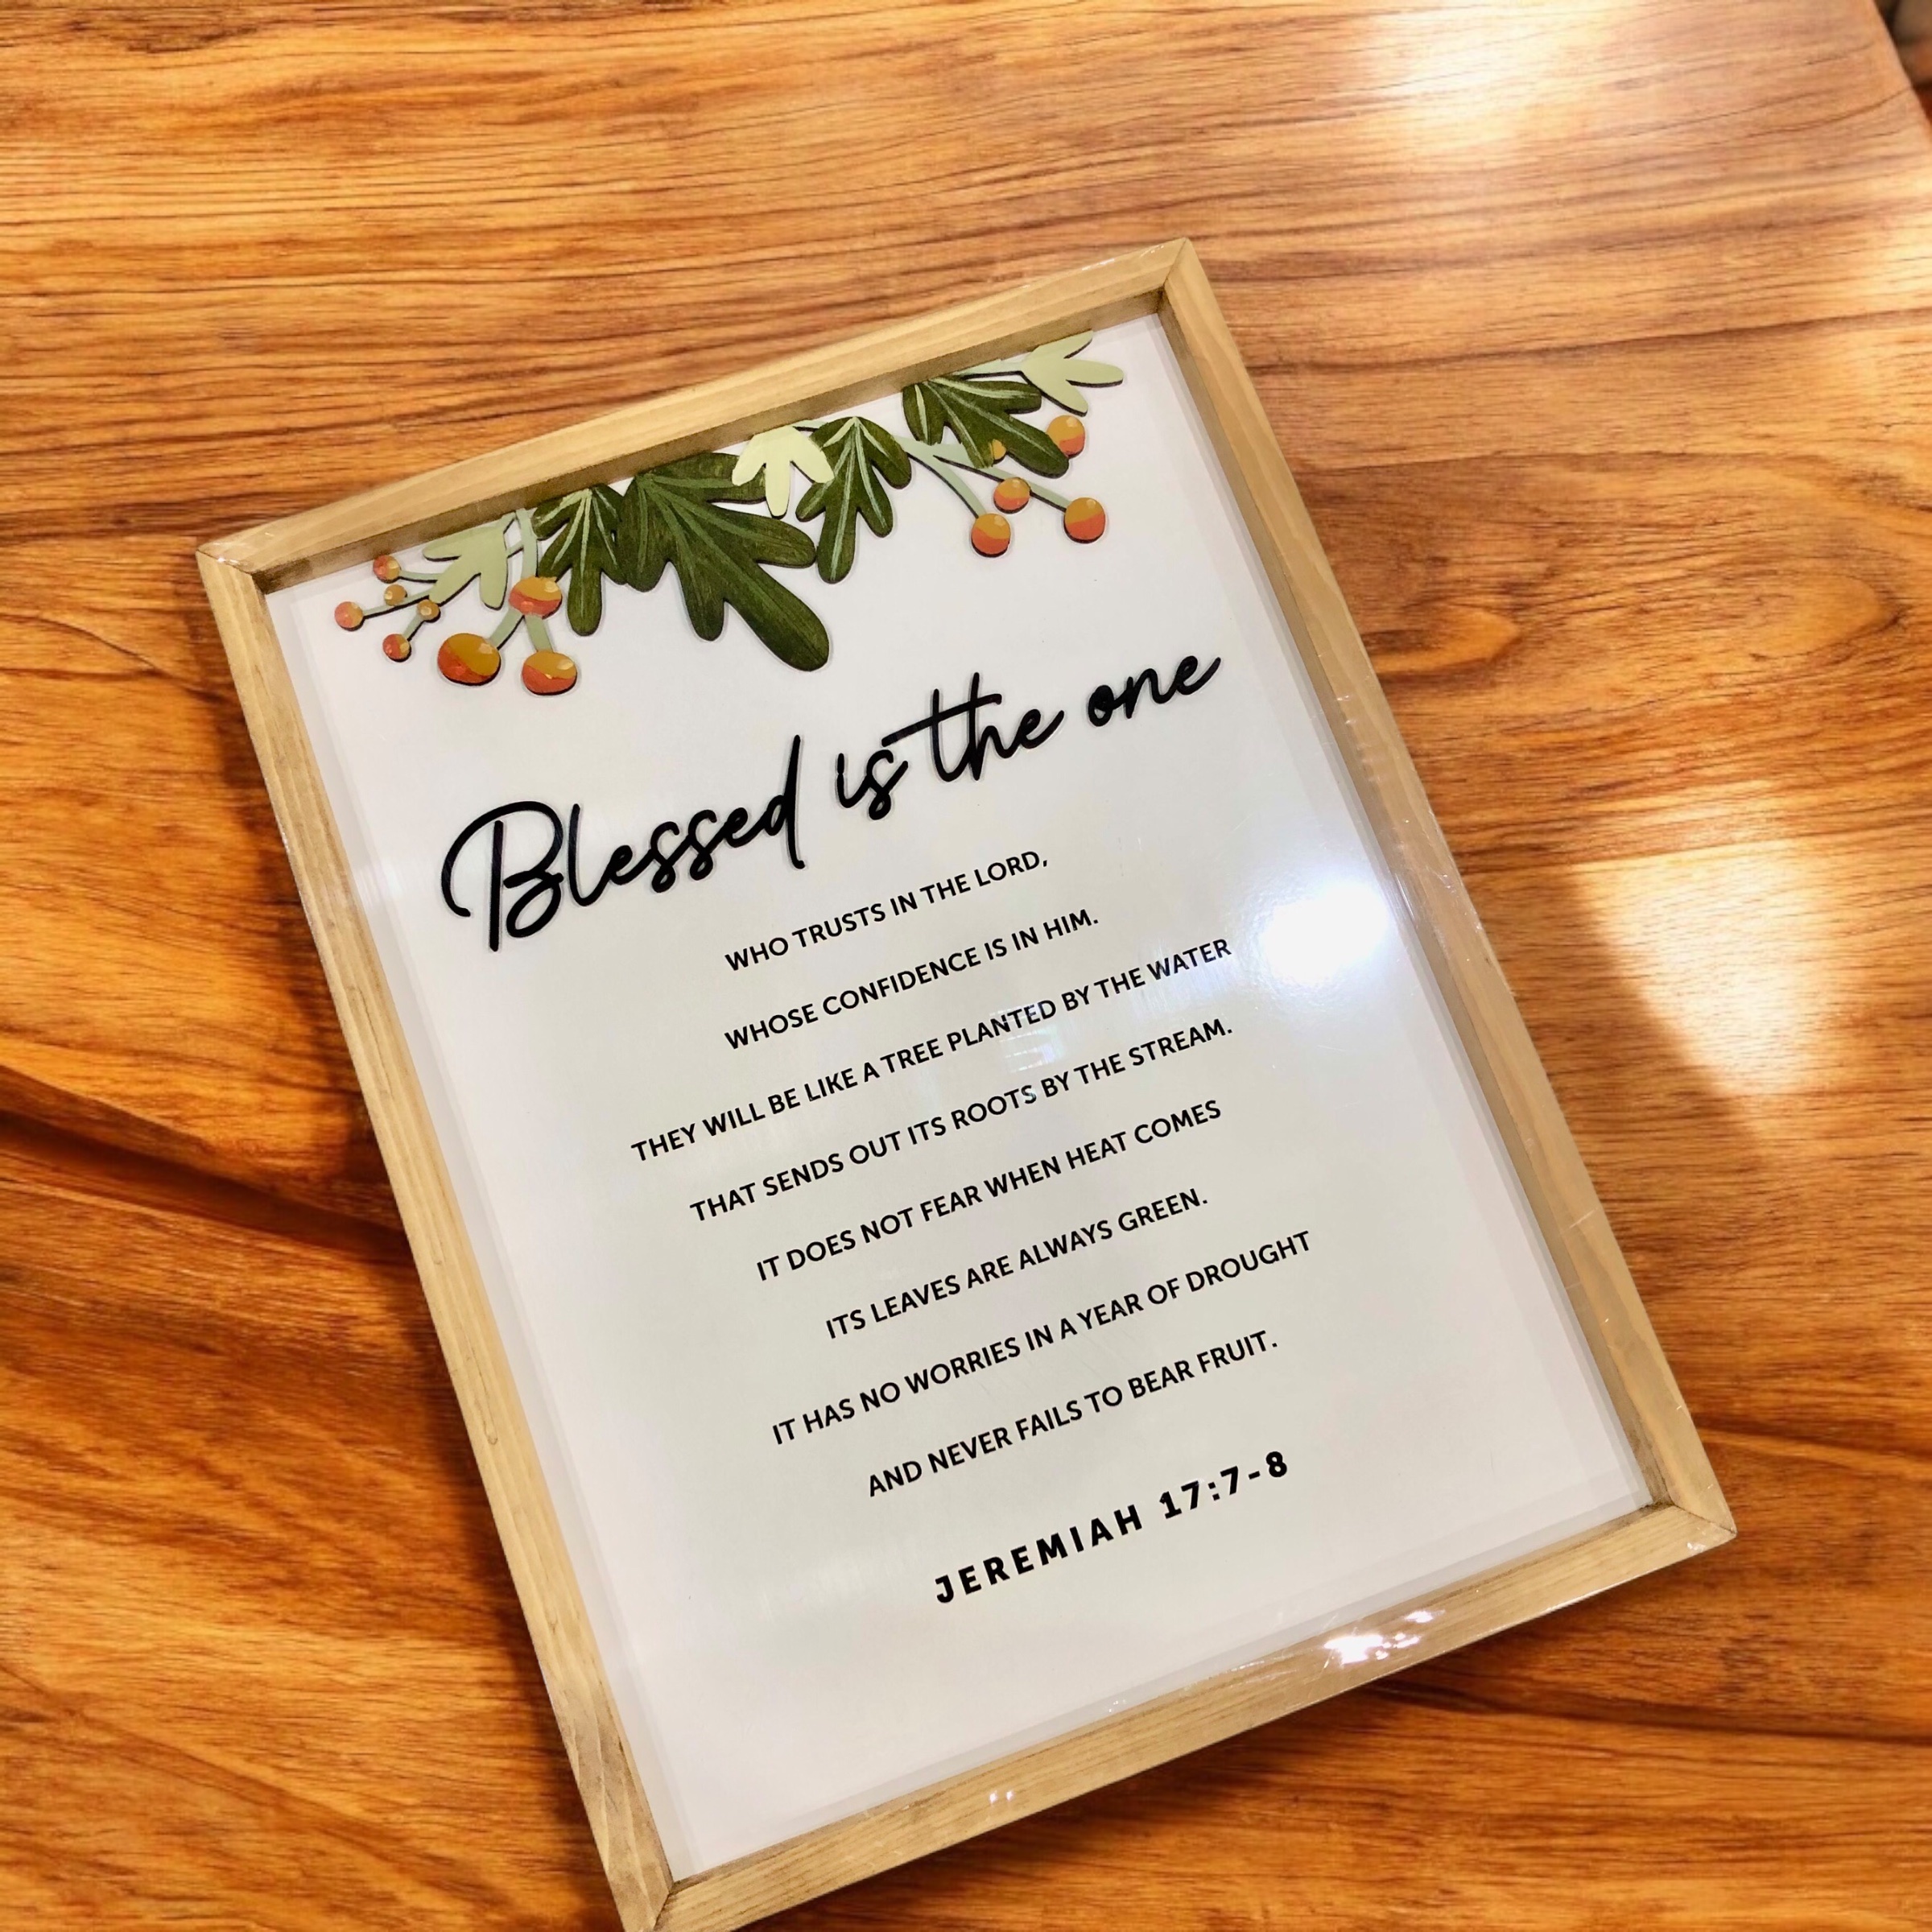 Blessed is the one
WHO TRUSTS IN THE LORD,
WHOSE CONFIDENCE IS IN HIM.
THEY WILL BE LIKE A TREE PLANTED BY THE WATER
THAT SENDS OUT ITS ROOTS BY THE STREAM.
IT DOES NOT FEAR WHEN HEAT COMES
ITS LEAVES ARE ALWAYS GREEN.
IT HAS NO WORRIES IN A YEAR OF DROUGHT
AND NEVER FAILS TO BEAR FRUIT.
JEREMIAH 17:7-8